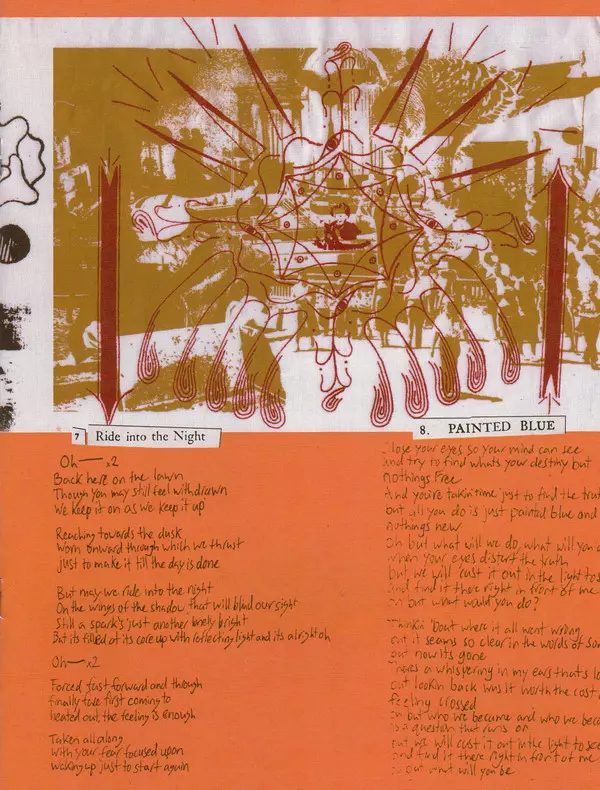 7 Ride into the Night
Oh— x2
Back here on the lawn
Though you may still feel withdrawn
We keep it on as we keep it up
Reaching towards the dusk
Worn onward through which we thrust
just to make it till the day is done
But may we ride into the night
On the wings of the shadow that will blind our sight
Still a spark's just another lonely bright
But its filled at its core up with reflecting light and its alright oh
Oh— x2
Forced fast forward and through
finally take first coming to
heated out the feeling is enough
Taken all along
With your fear focused upon
waking up just to start again
8. PAINTED BLUE
lose your eyes so your mind can see
and try to find whats your destiny but
nothings Free
And you're takin time just to find the trut
but all you do is just painted blue and
nothings new
oh but what will we do, what will you
when your eyes distort the truth
but we will cast it out in the light to s
and find it there right in front of me
oh but what would you do?
Thinkin 'bout where it all went wrong
but it seems so clear in the words of son
but now its gone
Theres a whispering in my ears that's lo
but lookin back was it worth the cost
feeling crossed
oh but who we became and who we beco
a question that runs on
but we will cast it out in the light to see
and find it there right in front of me
oh but what will you be